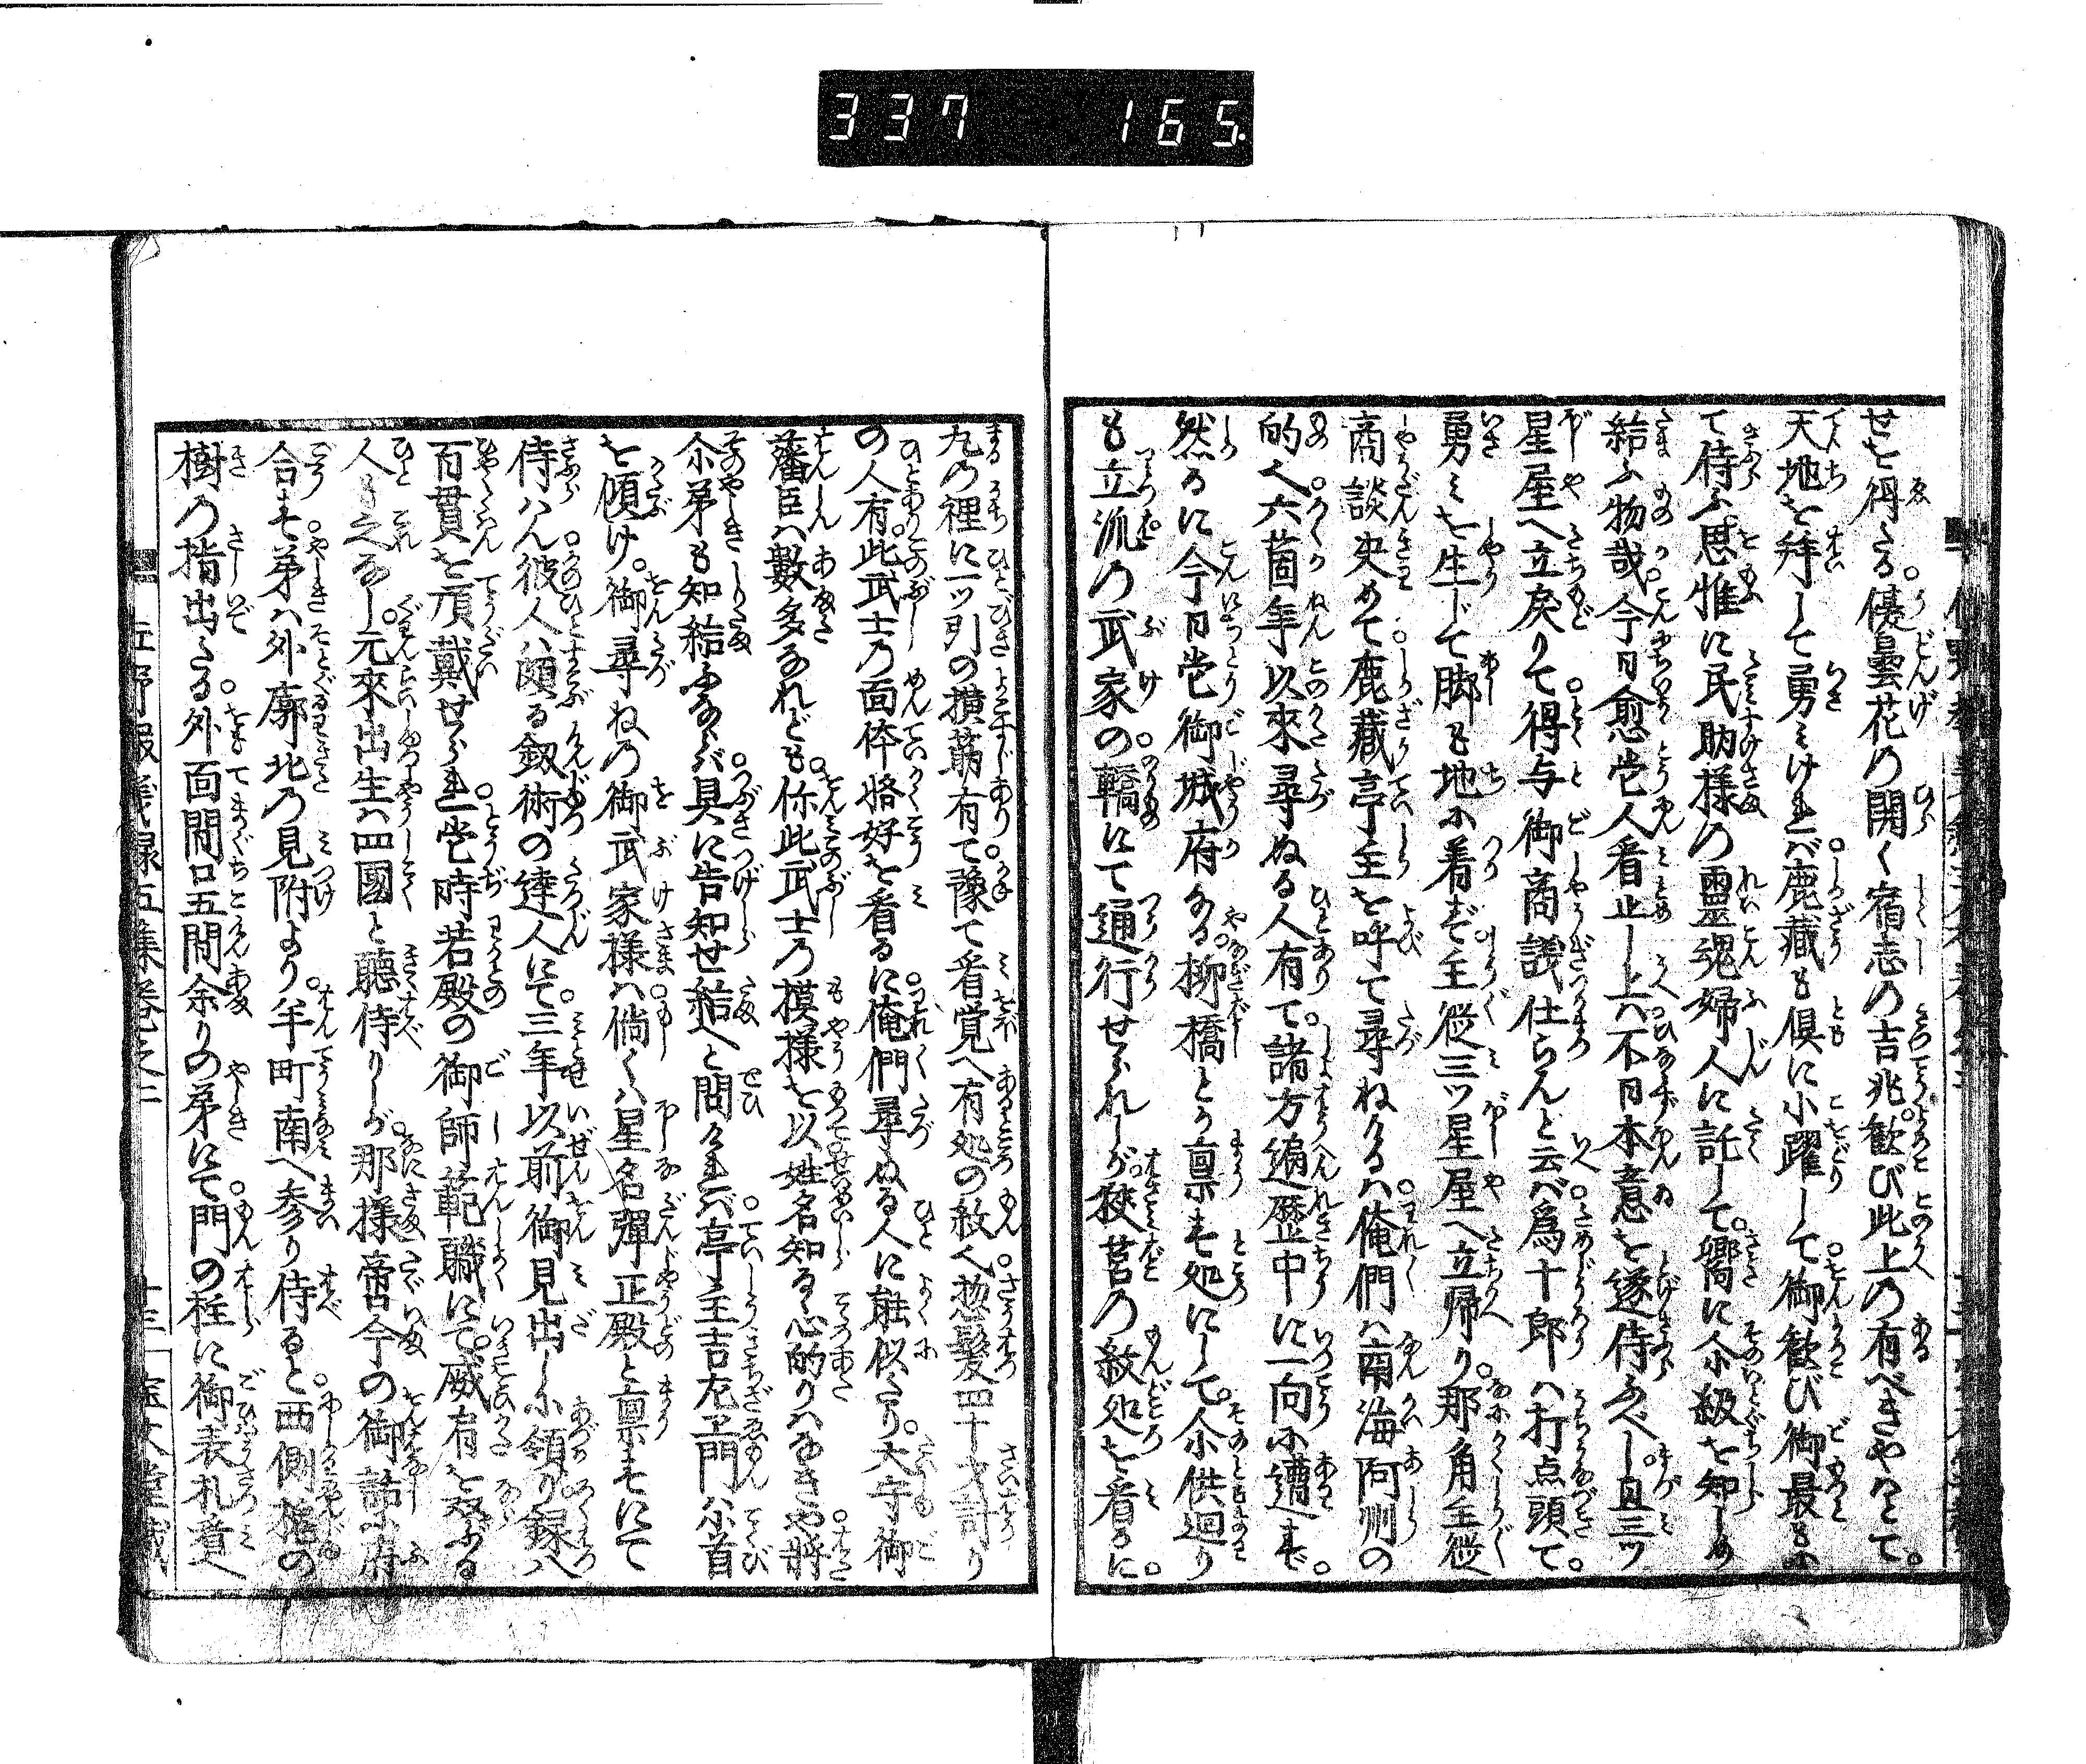 337 165
せを得たる。優曇花の開く宿志の吉兆。歓び此上の有べきやはとて。
天地を拝して勇みければ。鹿蔵も倶に小躍して。御歓び御最もに
て侍ふ。思惟に民助様の霊魂婦人に託して。嚮に尓級を知しめ
給ふ物哉。今日愈当人看止し上は。不日本意を遂侍ふべし。且三ツ
星屋へ立戻りて。得与御商議仕らんと云ば。為十郎は打点頭て。
勇みを生じて脚も地に着ず。主従三ツ星屋へ立帰り。那角主従
商談決めて。鹿蔵亭主を呼て尋ねけるは。俺們は南海阿州の
的。く六箇年以来尋ぬる人有て。諸方遍歴中に一向に遭ず。
然るに今日当御城府なる。柳橋とか稟す処にして。尓供廻り
も立派の武家の。轎にて通行せられしが。狭筥の紋処を看るに。
丸の裡に一ツ引の横筋有て。豫て看覚へ有処の紋。く惣髪四十才計り
の人有。此武士の面体恰好を看るに。俺們尋ぬる人に能似たり。太守御
藩臣は数多なれども。你此武士の模様を以姓名知る心的りはなきや。将
尓第も知給ふならば。具に告知せ給へと問ければ。亭主吉左エ門は首
を傾け。御尋ねの御武家様は。倘くは星名弾正殿と稟すにて
侍はん。彼人は頗る釼術の達人にて。三年以前御見出しに領り。録八
百貫を頂戴せられ。当時若殿の御師範職にて。威有を双ぶる
人も之なし。元来出生は四国と聴侍りしが。那様啻今の御話に府
合す。第は外廓北の見附より。半町南へ参り侍ると。西側檜の
樹の指出たる。外面間口五間余りの第にて。門の柱に御表札貫